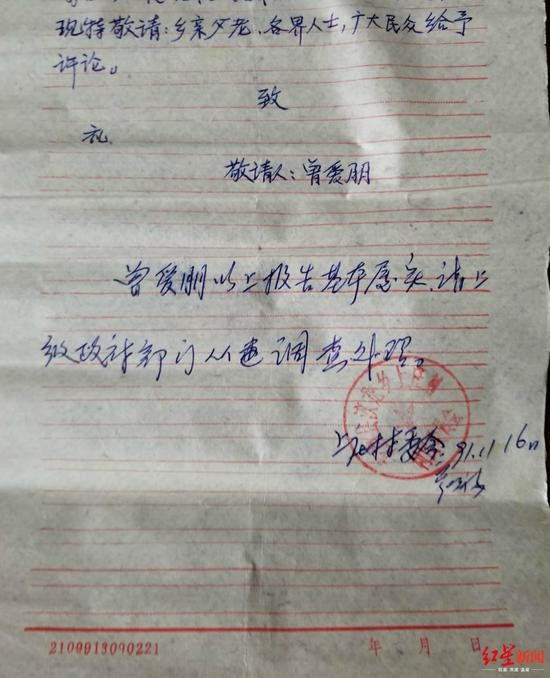 现特敬请：乡亲父老、各界人士，广大民众给予
评论。
致
礼
敬请人：曾爱朋
曾爱朋以上报告基本属实，请上
级政府部门从速调查处理。
村委会. 91.11.16日
2100913090221
年 月 日
红星新闻